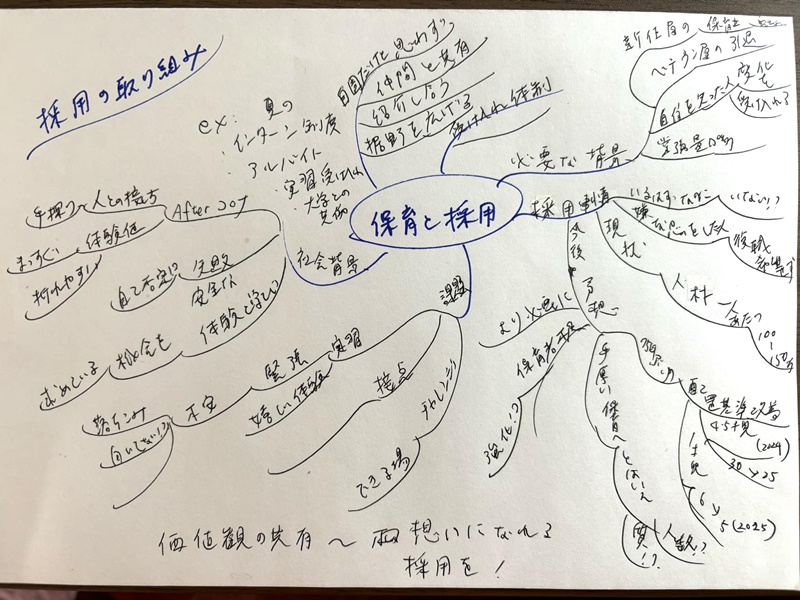 採用の取り組み
保育と採用
自園だけだと思わず
仲間と共有
紹介し合う
裾野を広げる
受け入れ体制
ex: 夏の
・インターン制度
・アルバイト
・実習受け入れ
・大学との
必要な背景
新任層の保育士
ベテラン層の引退
自信を失った人
変化を
受け入れる
採用事情
いるはずなのに
いない!?
嫌な思いをした人
復職
現状
人材一人あたり
100
150万
今後
予想
より必要に
保育者不足
強化!?
手厚い保育へ
とはいえ
質!?
人数!?
配置基準改善
4・5才児
(2024)
30→25
1才児
6→
5(2025)
課題
実習
緊張
不安
落ち込み
向いてない!?
嬉しい体験
接点
チャレンジ
できる場
社会背景
Afterコロナ
手探り〜人との接し方
体験値
まっすぐい
折れやすい
失敗
自己否定!?
安全な
体験と学びい
機会を
求めている
価値観の共有〜両想いになれる
採用を!